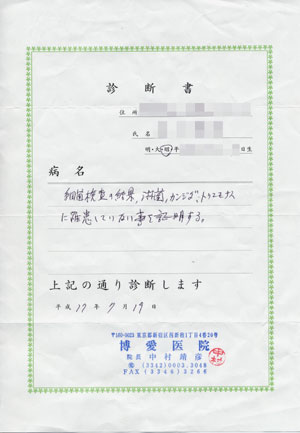 診断書
住所
氏名
明・大・昭・年 日生
病名
細菌検査の結果、淋菌、カンジダ、トリコモナス
に罹患していない事を証明する。
上記の通り診断します
平成 17 年 7 月 19 日
〒160-0023 東京都新宿区西新宿1丁目4番20号
博愛医院
院長 中村靖彦